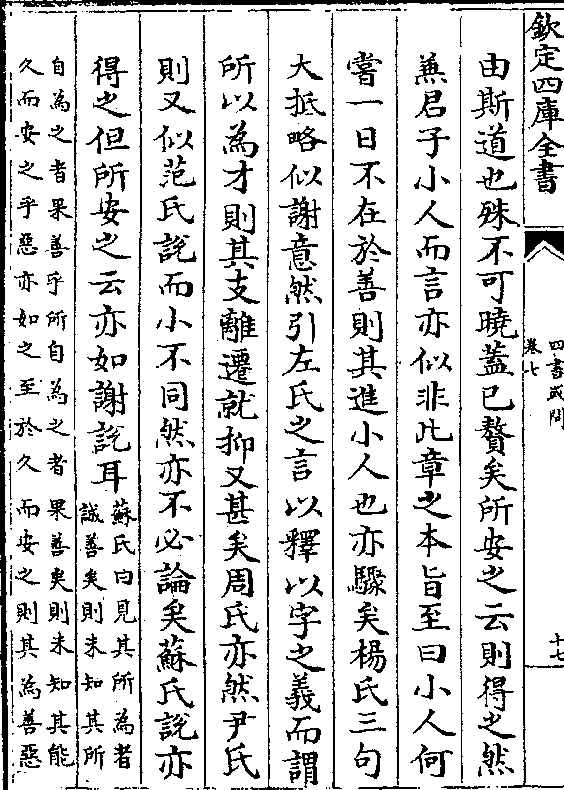 欽定四庫全書
四書或問
卷七
十七
由斯道也殊不可曉蓋已贅矣所安之云則得之然
兼君子小人而言亦似非此章之本旨至曰小人何
嘗一日不在於善則其進小人也亦驟矣楊氏三句
大抵略似謝意然引左氏之言以釋以字之義而謂
所以為才則其支離遷就抑又甚矣周氏亦然尹氏
則又似范氏說而小不同然亦不必論矣蘇氏說亦
得之但所安之云亦如謝說耳
蘇氏曰見其所為者
誠善矣則未知其所
自為之者果善乎所自為之者果善矣則未知其能
久而安之乎惡亦如之至於久而安之則其為善惡